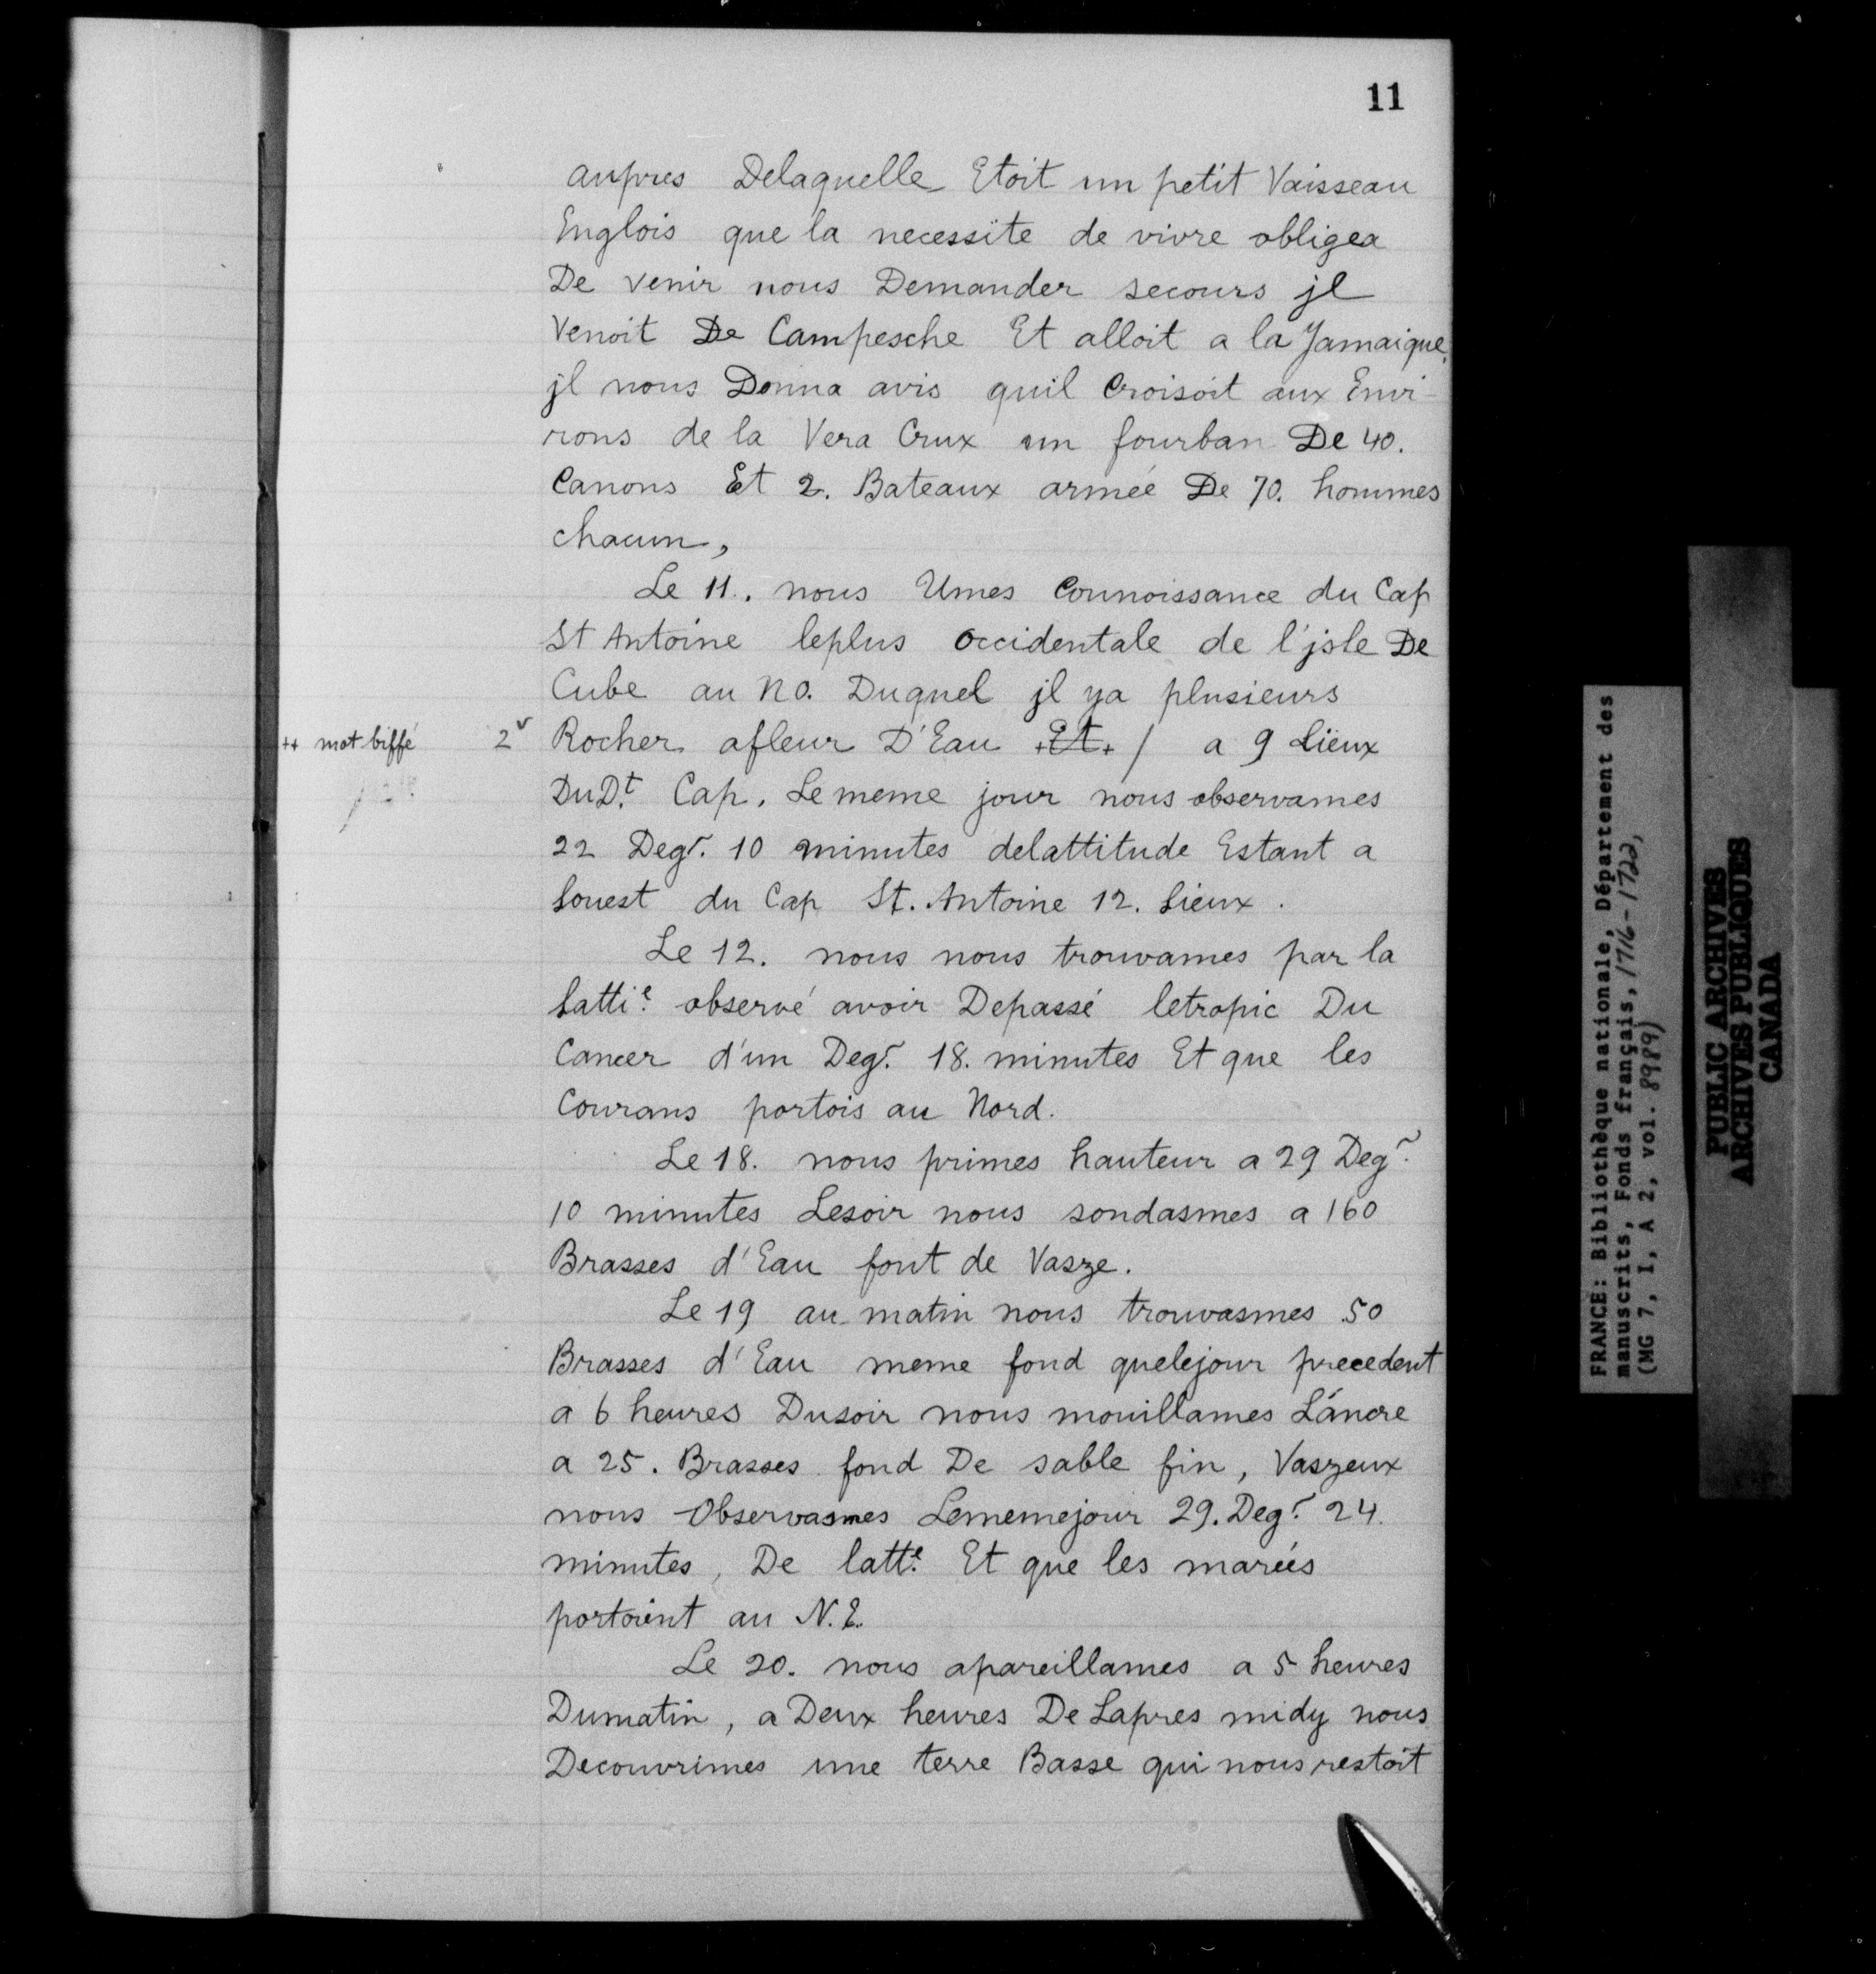 11
aupres Delaquelle Etoit un petit Vaisseau
Englois que la necessite de vivre obligea
De venir nous Demander secours jl
Venoit De Campesche Et alloit a la Jamaique,
jl nous Donna avis quil Croisoit aux Envi-
rons de la Vera Crux un fourban De 40.
Canons Et 2. Bateaux armée De 70. hommes
chacun,
Le 11. nous Umes Connoissance du Cap
St Antoine leplus occidentale de l'jsle De
Cube au NO. Duquel jl ya plusieurs
++ mot biffé 2v Rocher afleur D'Eau +Et+ / a 9 Lieux
DuDt. Cap. Le meme jour nous observames
22 Degr. 10 minutes delattitude Estant a
Louest du Cap St. Antoine 12. Lieux.
Le 12. nous nous trouvames par la
Lattie. observé avoir Depassé letropic Du
Cancer d'un Degr. 18. minutes Et que les
Courans portois au Nord.
Le 18. nous primes hauteur a 29 Degr.
10 minutes Lesoir nous sondasmes a 160
Brasses d'Eau font de Vasze.
Le 19 au matin nous trouvasmes 50
Brasses d'Eau meme fond quelejour precedent
a 6 heures Dusoir nous mouillames L'ancre
a 25. Brasses fond De sable fin, Vaszeux
nous Observasmes Lememejour 29. Degr. 24.
minutes, De latte. Et que les marées
portoient au N.E.
Le 20. nous apareillames a 5 heures
Dumatin, a Deux heures De Lapres midy nous
Decouvrimes une terre Basse qui nous restoit
FRANCE: Bibliothèque nationale, Département des
manuscrits, Fonds français, 1716-1722,
(MG 7, I, A 2, vol. 8989)
PUBLIC ARCHIVES
ARCHIVES PUBLIQUES
CANADA